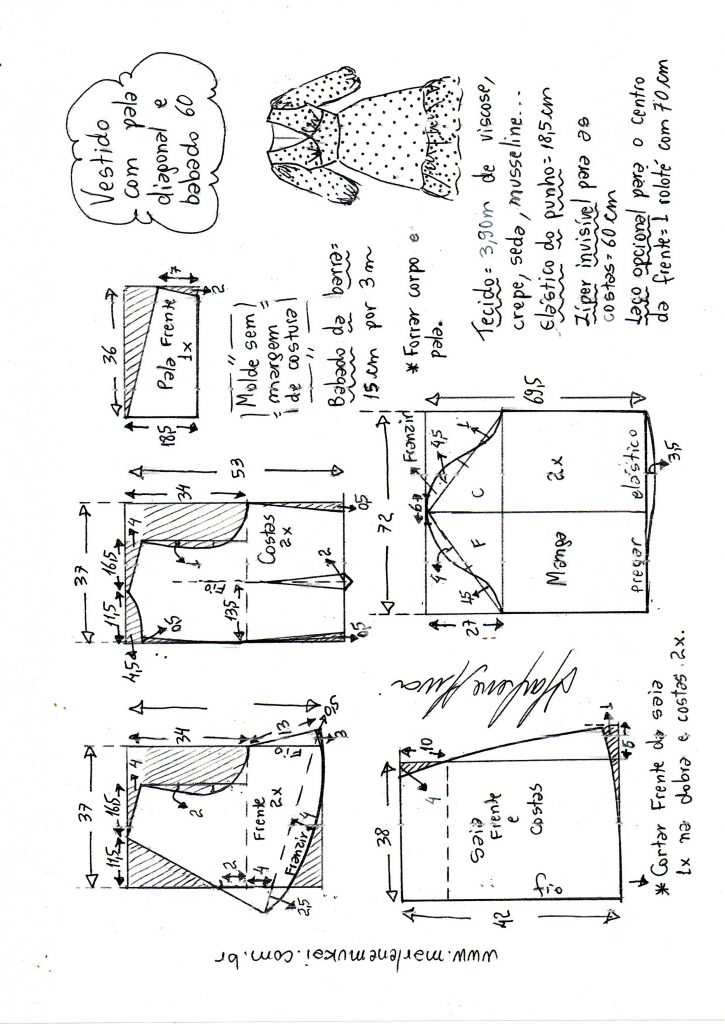 Vestido
com pala
diagonal e
babado 60
36
18,5
7
2
Pala Frente
1x
Molde sem
margem
de costura
Babado da barra=
15 cm por 3 m
* Forrar corpo e
pala.
Tecido= 3,90m de viscose,
crepe, seda, musseline...
Elástico do punho=18,5cm
Zíper invisível para as
costas=60 cm
Laço opcional para o centro
da frente=1 rolotê com 70 cm
37
11,5
16,5
4
34
53
4,5
0,5
1
Fio
13,5
Costas
2x
2
0,5
0,5
37
11,5
16,5
4
34
2
Frente
2x
2
4
Franzir
4
2,5
13
Fio
0,5
3
72
6
* Franzir
4,5
1
4
1,5
27
F
C
Manga
2x
pregar
elástico
3,5
69,5
38
4
10
4
42
Saia
Frente
e
Costas
fio
1
5
* Cortar Frente da saia
1x na dobra e costas 2x.
www.marlenemukai.com.br